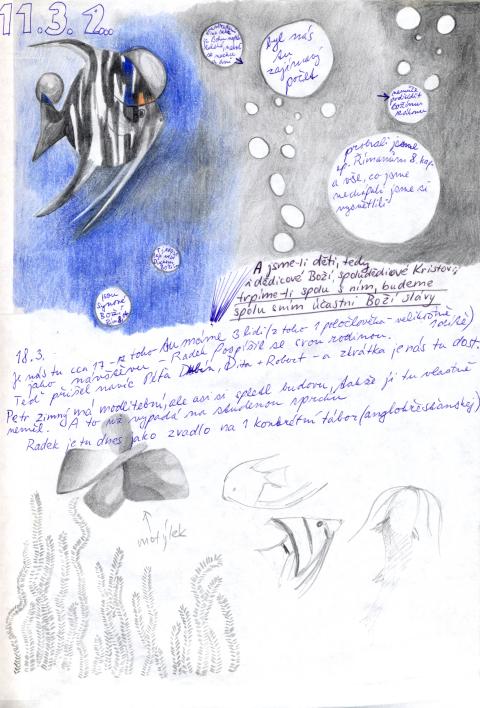 11.3.2..
byl nás
tu
zajímavý
počet
nemůže
podléhat
Božímu
zákonu
probrali jsme
ep. Římanům 8. kap.
a vše, co jsme
nechápali jsme si
vysvětlili
jsou
synové
Boží
A jsme-li děti, tedy
i dědicové Boží, spoludědicové Kristovi,
trpíme-li spolu s ním, budeme
spolu s ním účastni Boží slávy
18.3.
Je nás tu cca 17 - z toho tu máme 3 lidi / z toho 1
jako návštěvu - Radek Pospíšil se svou rodinou.
Teď přišel navíc Péťa Dubín, Dita + Robert - a zkrátka je nás tu dost.
Petr Zimný má modlitební, ale asi se spletl budovu, takže ji tu vlastně
neměl. A to už vypadá na studenou sprchu
Radek je tu dnes jako zvadlo na 1 konkrétní tábor (anglokřesťanský)
motýlek